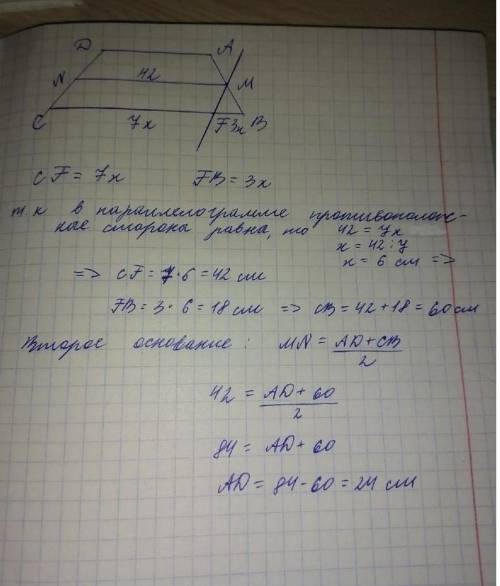 D A
N 42 M
C 7x F 3x B
CF = 7x FB = 3x
т.к в параллелограмме противополож-
ные стороны равна, то 42 = 7x
x = 42 : 7
x = 6 см =>
=> CF = 7·6 = 42 см
FB = 3·6 = 18 см => CB = 42 + 18 = 60 см
Второе основание: MN = (AD + CB)/2
42 = (AD + 60)/2
84 = AD + 60
AD = 84 - 60 = 24 см